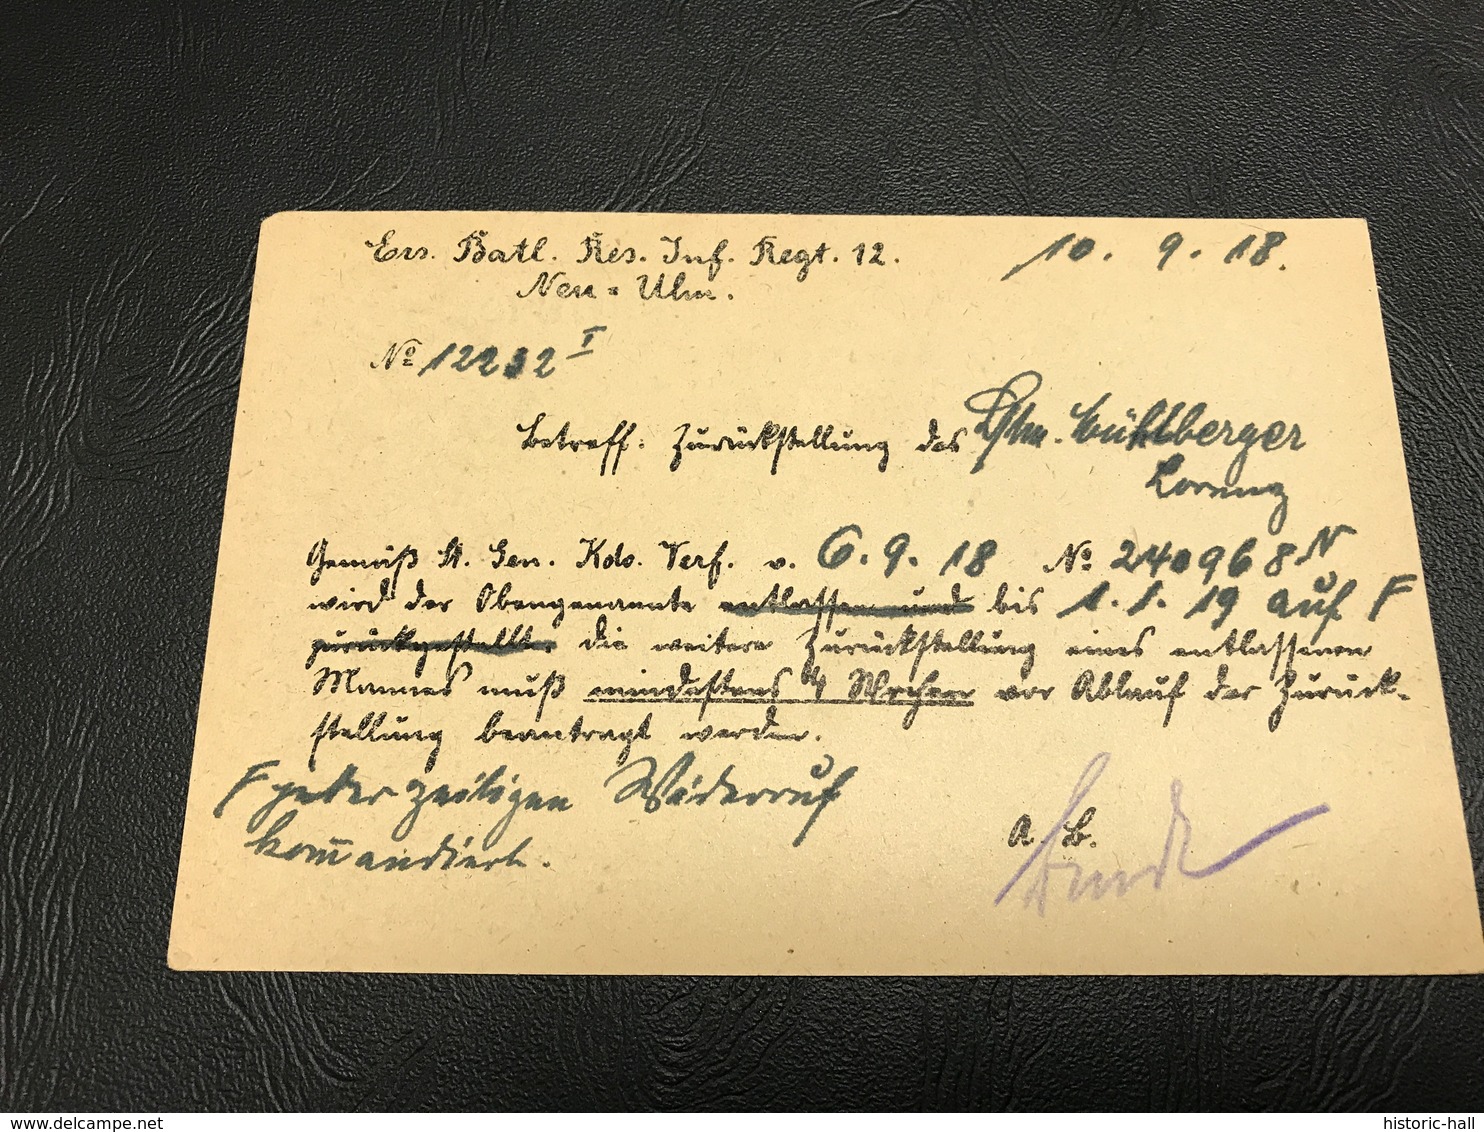 Ers. Batl. Res. Inf. Regt. 12.
10. 9. 18.
Neu-Ulm.
No 12232 I
Betreff: Zurückstellung des Lstm. Bühlberger
Lorenz
Gemäß St. Gen. Kdo. Verf. v. 6. 9. 18 No 240968 N
wird der Obengenannte entlassen und bis 1. 1. 19 auf F
zurückgestellt. die weitere Zurückstellung eines entlassenen
Mannes muß mindestens 4 Wochen vor Ablauf der Zurück-
stellung beantragt werden.
F jederzeitigen Widerruf
kom̅andiert.
A. B.
delcampe.net
historic-hall